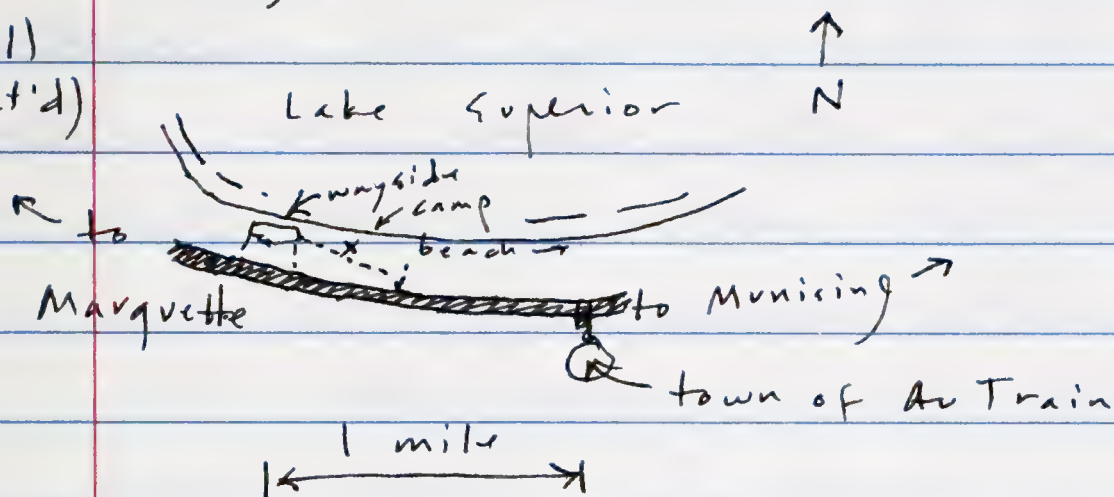 1)
t'd)
N
Lake Superior
wayside
camp
to
beach
Marquette
to Munising
town of Au Train
1 mile